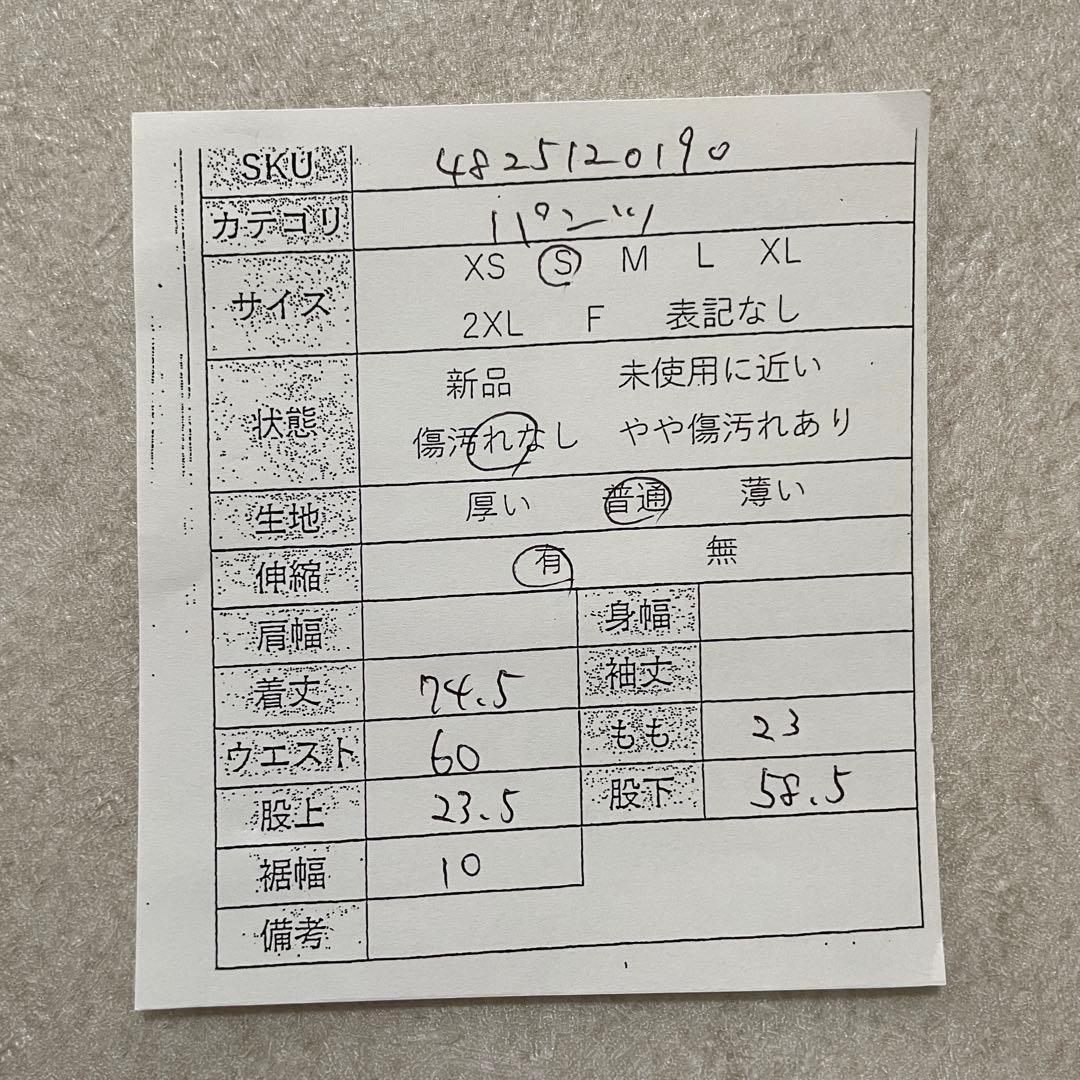 SKU 4825120190
カテゴリ パンツ
サイズ XS S M L XL
2XL F 表記なし
状態 新品 未使用に近い
傷汚れなし やや傷汚れあり
生地 厚い 普通 薄い
伸縮 有 無
肩幅 身幅
着丈 74.5 袖丈
ウエスト 60 もも 23
股上 23.5 股下 58.5
裾幅 10
備考